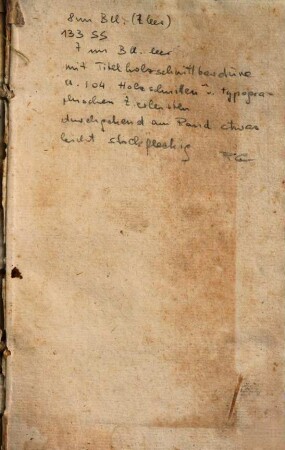 8 nn Bll: (Z leer)
133 SS
7 nn Bll. leer
mit Titelholzschnittbordüre
u. 104 Holzschnitten u. typogra-
phischen Zierleisten
durchgehend am Rand etwas
leicht stockfleckig